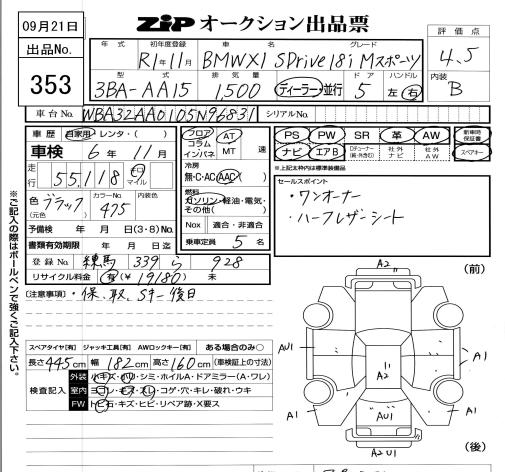 09月21日
ZIP オークション出品票
評価点
4.5
内装
B
出品No.
353
年式 初年度登録 車名 グレード
R1年11月 BMWX1 SDrive18i Mスポーツ
型式 排気量 ドア ハンドル
3BA-AA15 1,500 ディーラー・並行 5 左 右
車台No. WBA32AA0105N96831 シリアルNo.
車歴 自家用・レンタ・( )
車検 6年11月
走行 55,118 キロ マイル
色 ブラック カラーNo. 475 内装色
(元色)
予備検 年 月 日(3・8)No.
書類有効期限 年 月 日迄
登録No. 練馬 339 ら 928
リサイクル料金 有(¥19180) 未
フロア コラム インパネ AT MT 速
冷房
無・C・AC AAC
燃料
ガソリン・軽油・電気・その他( )
Nox 適合・非適合
乗車定員 5 名
PS PW SR 革 AW 新車時保証書
ナビ エアB 社外ナビ 社外AW スペアキー
※上記太枠内は標準装備品
セールスポイント
・ワンオーナー
・ハーフレザーシート
[注意事項]・保、取、Sキー後日
スペアタイヤ[有] ジャッキ工具[有] AWロックキー[有] ある場合のみ○
長さ445cm 幅182cm 高さ160cm (車検証上の寸法)
検査記入
外装 小キズ・小凹・シミ・ホイルA・ドアミラー(A・ワレ)
室内 ヨゴレ・キズ・スレ・コゲ・穴・キレ・破れ・ウキ
FW トビ石・キズ・ヒビ・リペア跡・X要ス
※ご記入の際はボールペンで強くご記入下さい。
(前)
A2
AU1
A1
11
A2
A1
A1
AU1
A2 U1
(後)